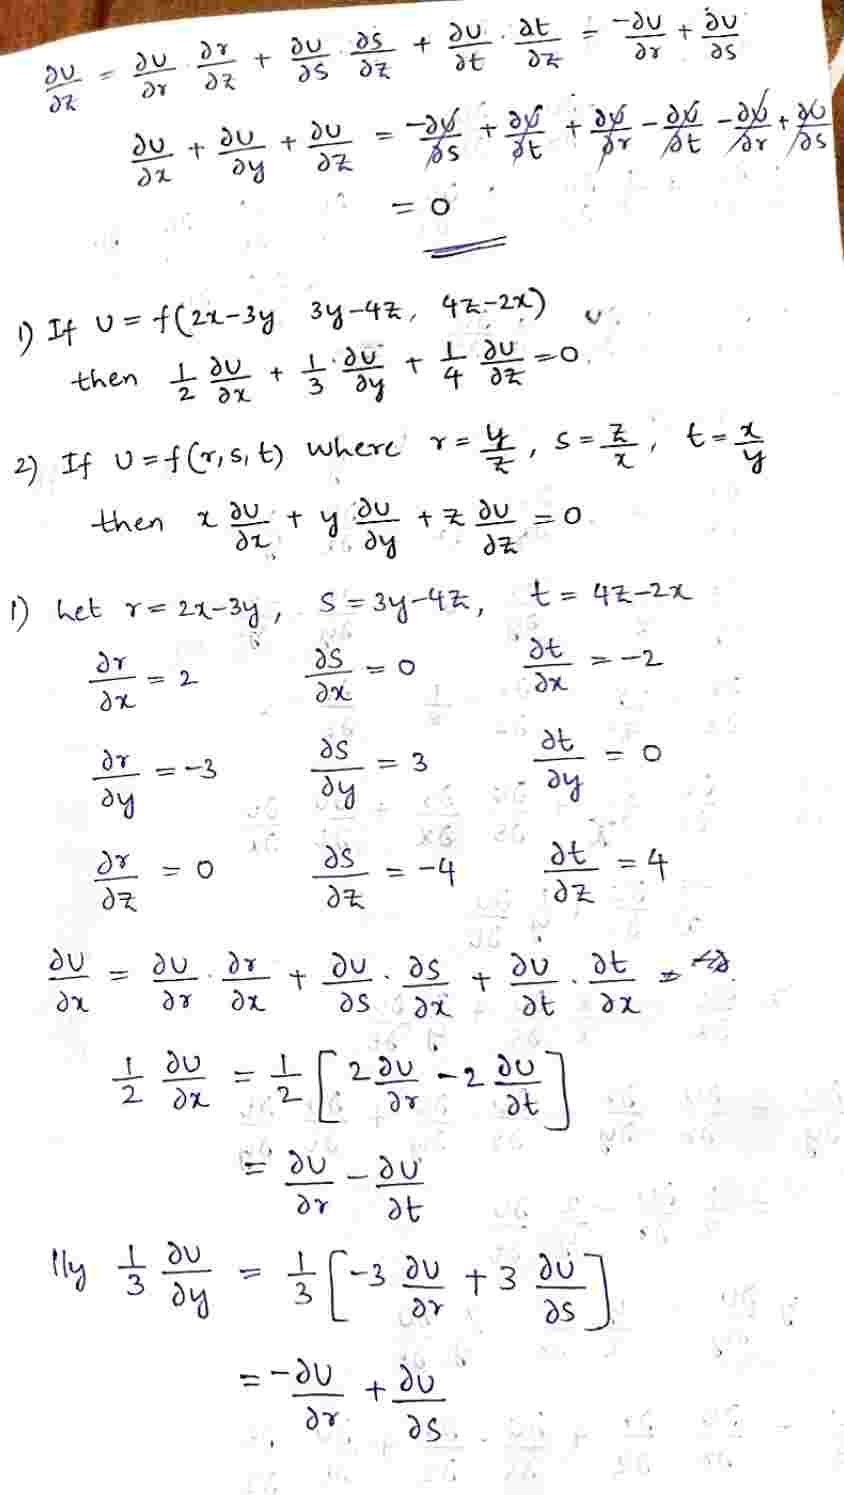 ∂U/∂z = ∂U/∂r · ∂r/∂z + ∂U/∂s · ∂s/∂z + ∂U/∂t · ∂t/∂z = -∂U/∂r + ∂U/∂s
∂U/∂x + ∂U/∂y + ∂U/∂z = -∂U/∂s + ∂U/∂t + ∂U/∂r - ∂U/∂t - ∂U/∂r + ∂U/∂s
= 0
1) If U = f(2x-3y 3y-4z, 4z-2x)
then 1/2 ∂U/∂x + 1/3 · ∂U/∂y + 1/4 ∂U/∂z = 0.
2) If U = f(r, s, t) where r = y/z, s = z/x, t = x/y
then x ∂U/∂x + y ∂U/∂y + z ∂U/∂z = 0
1) Let r = 2x-3y, s = 3y-4z, t = 4z-2x
∂r/∂x = 2 ∂s/∂x = 0 ∂t/∂x = -2
∂r/∂y = -3 ∂s/∂y = 3 ∂t/∂y = 0
∂r/∂z = 0 ∂s/∂z = -4 ∂t/∂z = 4
∂U/∂x = ∂U/∂r · ∂r/∂x + ∂U/∂s · ∂s/∂x + ∂U/∂t · ∂t/∂x =
1/2 ∂U/∂x = 1/2 [2 ∂U/∂r - 2 ∂U/∂t]
= ∂U/∂r - ∂U/∂t
lly 1/3 ∂U/∂y = 1/3 [-3 ∂U/∂r + 3 ∂U/∂s]
= -∂U/∂r + ∂U/∂s